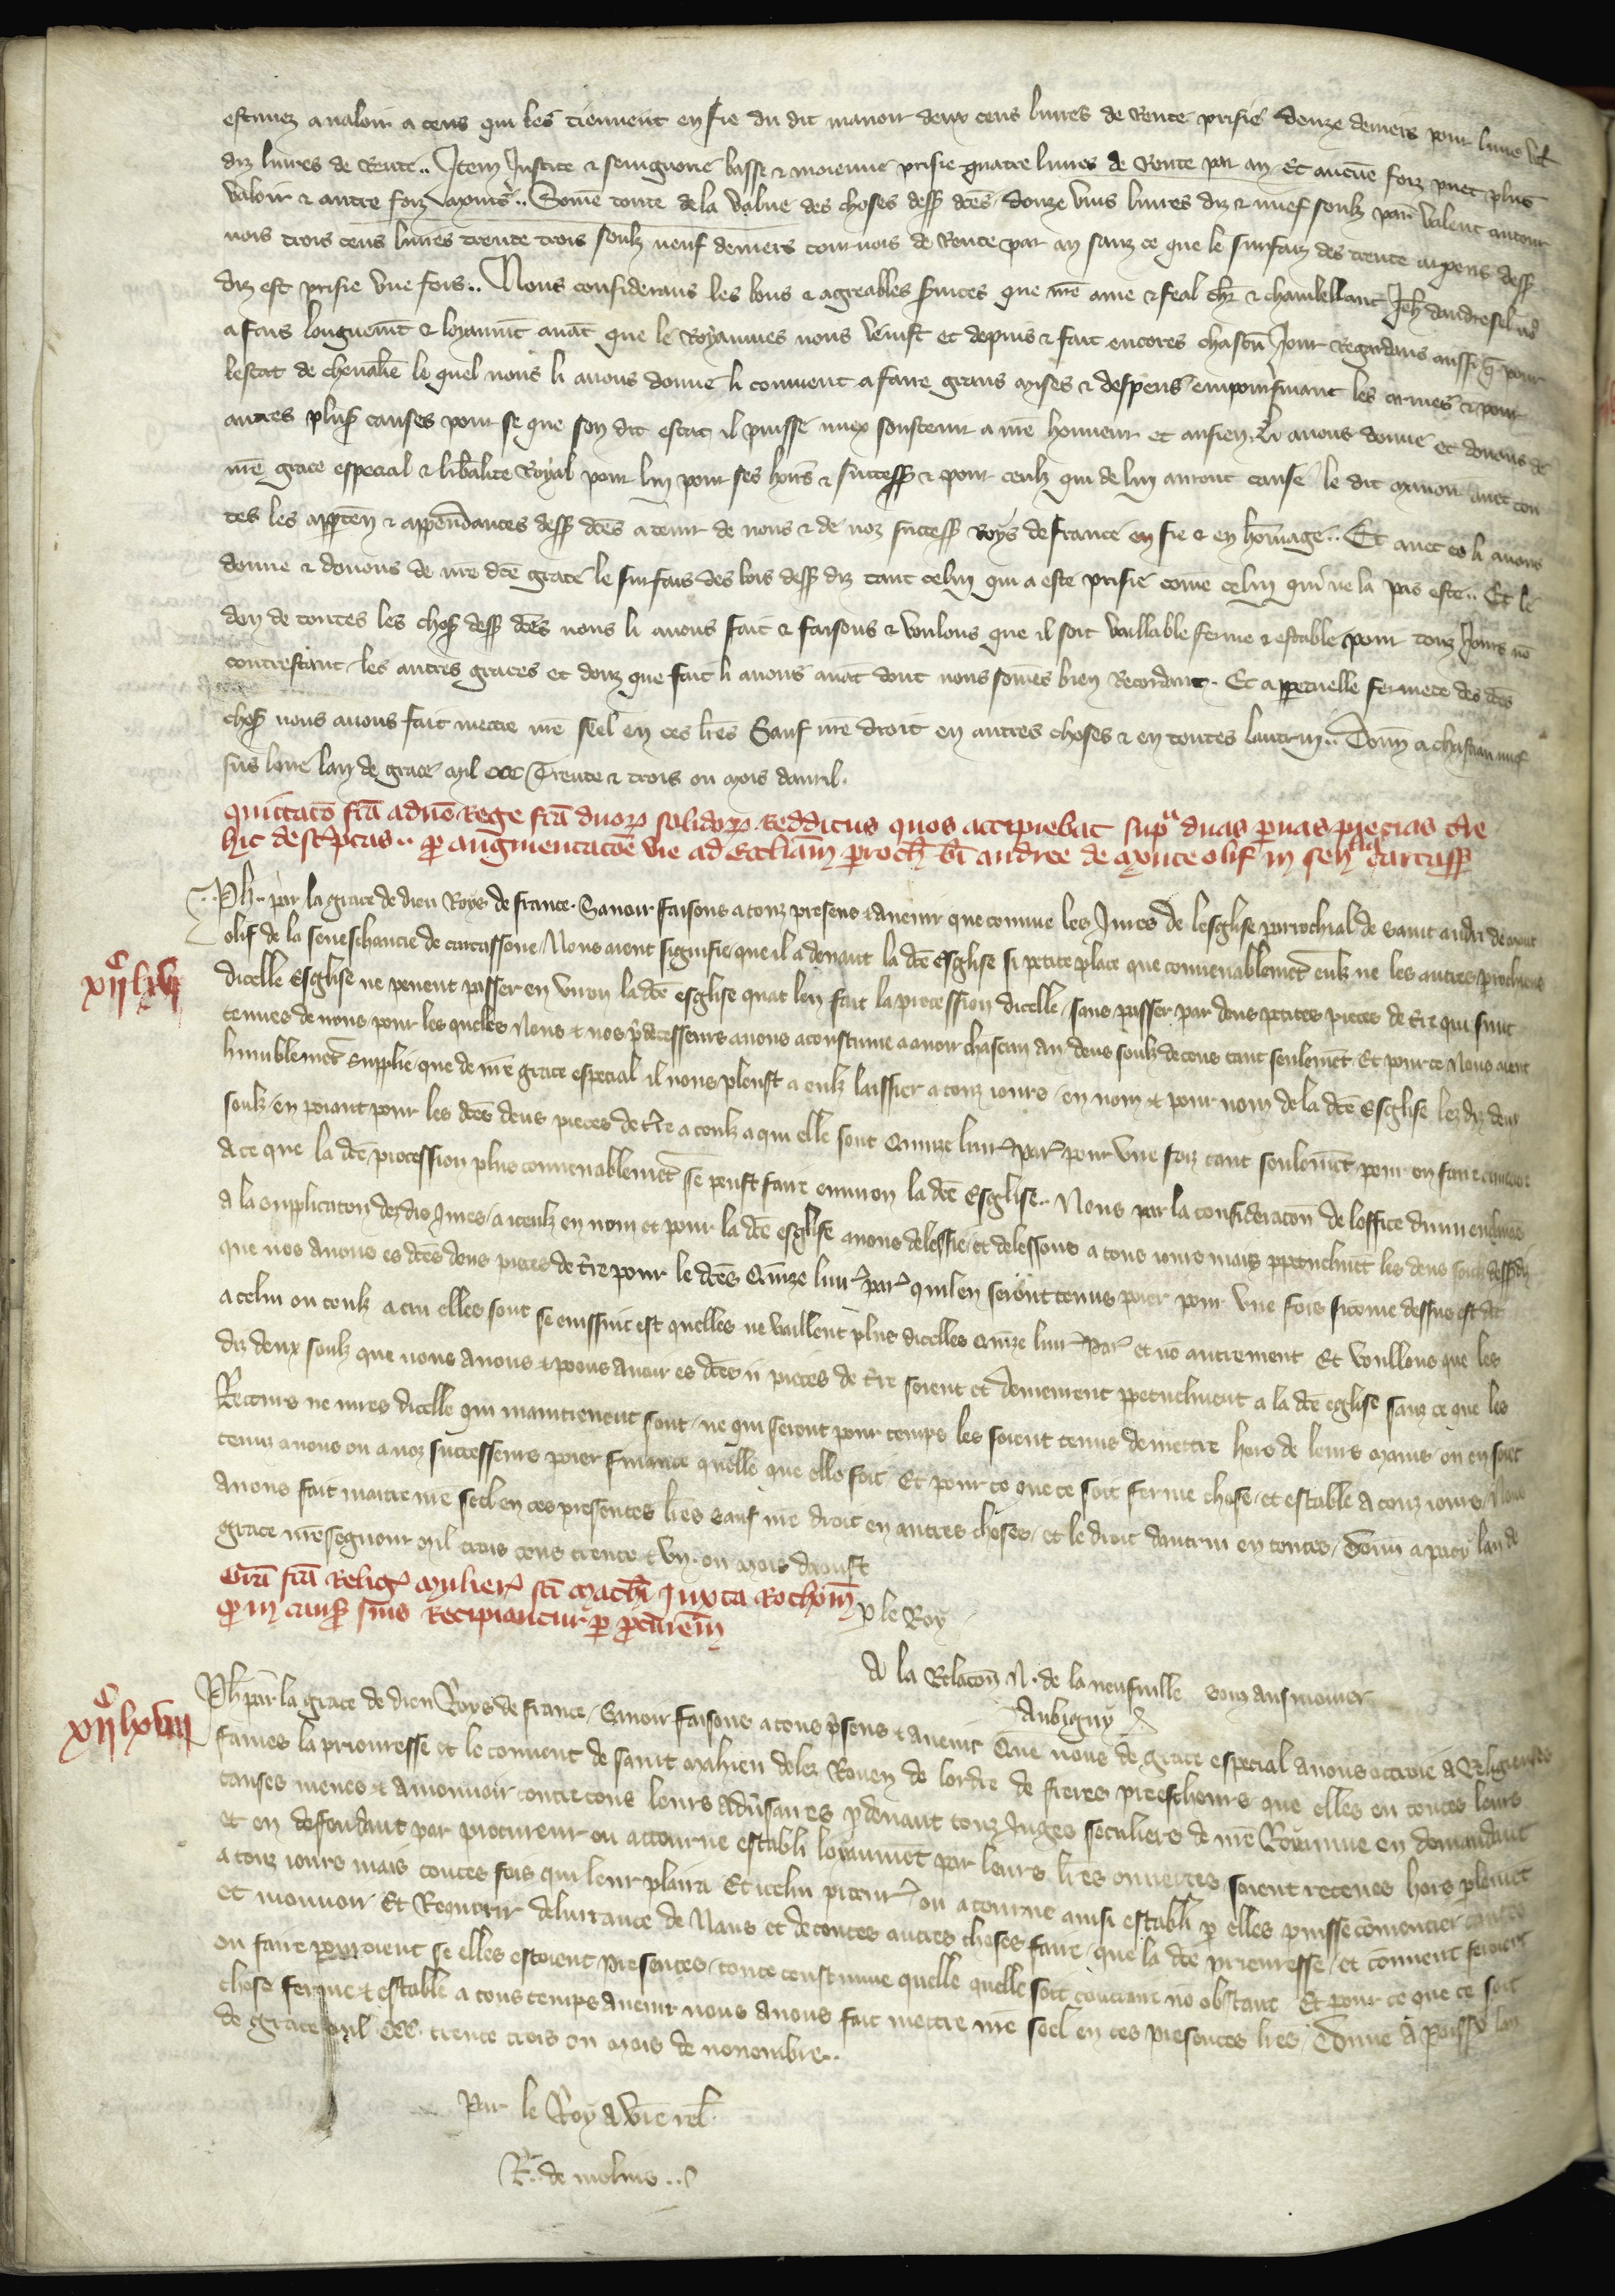 estimez a valoir a ceus qui les tiennent en fie du dit manoir deux cens livres de rente prisie douze deniers pour livre vt
diz livres de rente.. Item Justice & seingnorie basse & moienne prisie quatre livres de rente par an. Et aucune foiz puet plus
valoir & autre foiz moins.. Some toute de la value des choses dess dces douze vins livres diz & nuef soulz par valent a tour
nois trois cens livres trente trois soulz neuf deniers tournois de rente par an sanz ce que le surfaiz des trente arpens dess
diz est prisie une fois.. Nous considerans les bons & agreables services que nre ame & feal chr & chambellanc Jeh dandresel nos
a fais longuemt & loyaumt avat que le Royaumes nous venist et depuis & fait encores chascun jour Regardans aussi q pour
lestat de chevalie le quel nous li avons donne li convient a faire grans mises & despens en poursivant les armes & pour
autres plus causes pour se que son dit estat il puisse miex soustenir a nre honneur et au sien. Li avons donne et donons de
nre grace especial & liberalite Royal pour lui pour ses hoirs & success & pour ceulz qui de lui auront cause le dit manoir avec tou
tes les apparten & appendances dess dces a tenir de nous & de noz success roys de france en fie & en homage.. Et avec ce li avons
donne & donons de nre dce grace le surfais des bois dess diz tant celui qui a este prisie come celui qui ne la pas este.. Et le
don de toutes les choses dess dces nous li avons fait & faisons & voulons que il soit vaillable ferme & estable pour touz jours no
contrestant les autres graces et dons que fait li avons avat dont nous somes bien recordant. Et a perpetuelle fermete des dces
choses nous avons fait mettre nre seel en ces lres Sauf nre droit en autres choses & en toutes lautrui.. Donn a chastiau nuef
sus loire lan de grace mil ccc Trente & trois ou mois davril.
Quittaco fca a dno Rege fca duorum solidorum redditus quos accipiebat supra duas parvas pecias tre
hic descriptas.. pro augmentacoe vie ad eccliam proch bi andree de monte olif in senlla carcass
Ph.. par la grace de dieu Roys de france. Savoir faisons a touz presens & avenir que comme les Juiees de lesglise parrochial de saint andri de mont
olif de la seneschaucie de carcassone, Nous aient signifie que il a devant la dce Esglise si petite place que convenablemet eulz ne les autres prochiens
dicelle Esglise ne peuent passer en viron la dce esglise quat len fait la procession dicelle, sans passer par deus petites pieces de tre qui sunt
tenues de nous pour les queles Nous & nos pdecesseurs avons acoustume a avoir chascun an deus soulz de cens tant seulemet Et pour ce Nous aient
humblemet supplie que de nre grace especial il nous pleust a eulz laissier a touz iours, en nom & pour nom de la dce Esglise lez diz deus
soulz, en poiant pour les dces deus pieces de tre a ceulz a qui elle sont Quinze livr par pour une foiz tant seulemet pour en faire
A ce que la dce procession plus convenablemet se peust faire environ la dce Esglise.. Nous par la consideracon de loffice divin enclinas
a la supplicaton dez diz Juiees, a iceulz en nom et pour la dce esglise avons delessie et delessons a tous iours mais ppetuelmet les deus soulz dess diz
que nos avons es dces deus pieces de tre pour le dces Quinze livr par quil en seront tenus poier pour une fois si come dessus est dit
a celui ou ceulz a cui elles sont se einssinc est quelles ne vaillent plus dicelles quinze livr Par et no autrement Et voullons que les
diz deux soulz que nous avons & poons avoir es dces ii pieces de tre soient et demeurent ppetuelment a la dce eglise sanz ce que les
Recteurs ne iuiees dicelle qui maintenent sont, ne qui seront pour temps les soient tenus de mettre hors de leurs mains, ou en soiet
tenuz a nous ou a noz successeurs poier finance quelle que elle soit. Et pour ce que ce soit ferme chose, et estable a touz iours, Nous
avons fait maitre nre seel en ces presentes lres sauf nre droit en autres choses, et le droit dautrui en toutes, Donn a pacy lan de
grace nre segneur mil trois cens trente & un. ou mois daoust
Gra fca religs mulier sci mathi juxta Rothom
qp in caus suis Recipiantur per pcurem
p le Roy
A la relacon N. de la neufville
Aubigny
Ph par la grace de dieu Roys de france, Savoir faisons a tous psens & avenir Que nous de grace especial avons ottroie a Religieuses
fames la prieuresse et le convent de saint mahieu delez Rouen de lordre de freres preescheurs que elles en toutes leurs
causes meues & a mouvoir contre tous leurs adversaires p devant touz Juges seculiers de nre Royaume en demandant
et en deffendant par procureur ou attourne establi loyaument par leurs lres ouvertes soient receues hors plemet
a touz iours mais toutes fois qui leur plaira Et icelui pcureur ou atourne ainsi establi p elles puisse comencier causes
et mouvoir Et Requerir delivrance de Naus et de toutes autres choses faire, que la dce prieuresse, et convent feroient
ou faire porroient se elles estoient presentes, toute coustume quelle quelle soit contraire no obstant Et pour ce que ce soit
chose ferme & estable a tous temps avenir nous avons fait mettre nre seel en ces presentes lres Donne A Poissy lan
de grace mil. ccc. trente trois ou mois de novembre..
Par le Roy a vre rel
R. de molins..
xiic lxvi
xiic lxviii